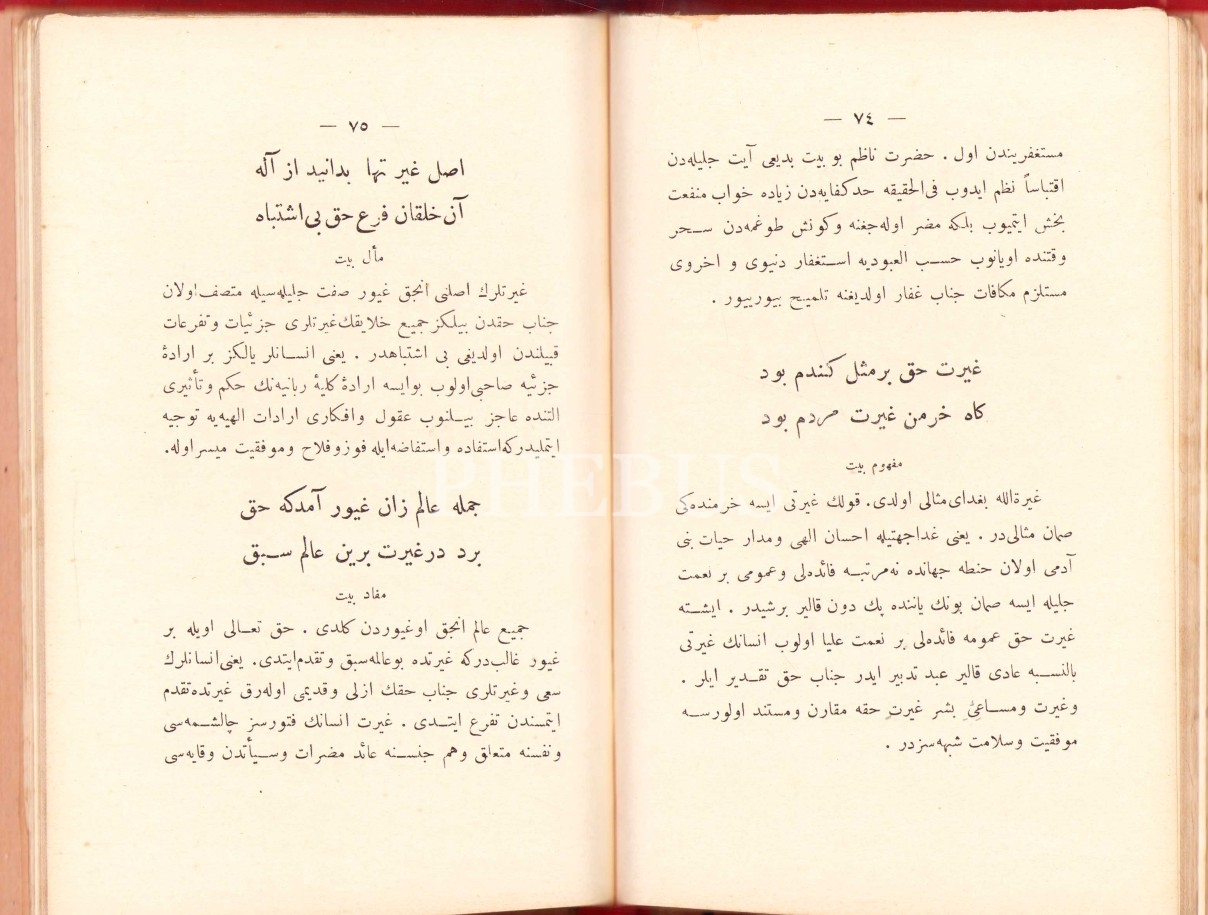 — ٧٤ —
مستغفریندن اول . حضرت ناظم بو بیت بدیعی آیت جلیله‌دن
اقتباساً نظم ایدوب فی‌الحقیقه حد کفایه‌دن زیاده خواب منفعت
بخش ایتمیوب بلکه مضر اوله‌جغنه وکونش طوغمه‌دن سحر
وقتنده اویانوب حسب العبودیه استغفار دنیوی و اخروی
مستلزم مکافات جناب غفار اولدیغنه تلمیح بیورییور .
غیرت حق بر مثل کندم بود
کاه خرمن غیرت مردم بود
مفهوم بیت
غیرةالله بغدای مثالی اولدی. قولك غیرتی ایسه خرمنده‌کی
صمان مثالی‌در . یعنی غداجهتیله احسان الهی ومدار حیات بنی
آدمی اولان حنطه جهانده نه‌مرتبه فائده‌لی وعمومی بر نعمت
جلیله ایسه صمان بونك یاننده پك دون قالیر برشیدر . ایشته
غیرت حق عمومه فائده‌لی بر نعمت علیا اولوب انسانك غیرتی
بالنسبه عادی قالیر عبد تدبیر ایدر جناب حق تقدیر ایلر .
وغیرت ومساعیٔ بشر غیرت حقه مقارن ومستند اولورسه
موفقیت وسلامت شبهه‌سزدر .
— ٧٥ —
اصل غیرتها بدانید از آله
آن خلقان فرع حق بی‌اشتباه
مأل بیت
غیرتلرك اصلنی انجق غیور صفت جلیله‌سیله متصف اولان
جناب حقدن بیلکز جمیع خلایقك غیرتلری جزئیات وتفرعات
قبیلندن اولدیغی بی اشتباهدر . یعنی انسانلر یالکز بر ارادۀ
جزئیه صاحبی اولوب بوایسه ارادۀ کلیۀ ربانیه‌نك حکم وتأثیری
التنده عاجز بیلنوب عقول وافکاری ارادات الهیه‌یه توجیه
ایتملیدرکه استفاده واستفاضه ایله فوزوفلاح وموفقیت میسر اوله.
جمله عالم زان غیور آمدکه حق
برد در غیرت برین عالم سبق
مفاد بیت
جمیع عالم انجق اوغیوردن کلدی . حق تعالی اویله بر
غیور غالب‌درکه غیرتده بوعالمه سبق وتقدم ایتدی. یعنی انسانلرك
سعی وغیرتلری جناب حقك ازلی وقدیمی اوله‌رق غیرتده تقدم
ایتمسندن تفرع ایتدی . غیرت انسانك فتورسز چالشمه‌سی
ونفسنه متعلق وهم جنسنه عائد مضرات وسیأتدن وقایه‌سی
PHEBUS